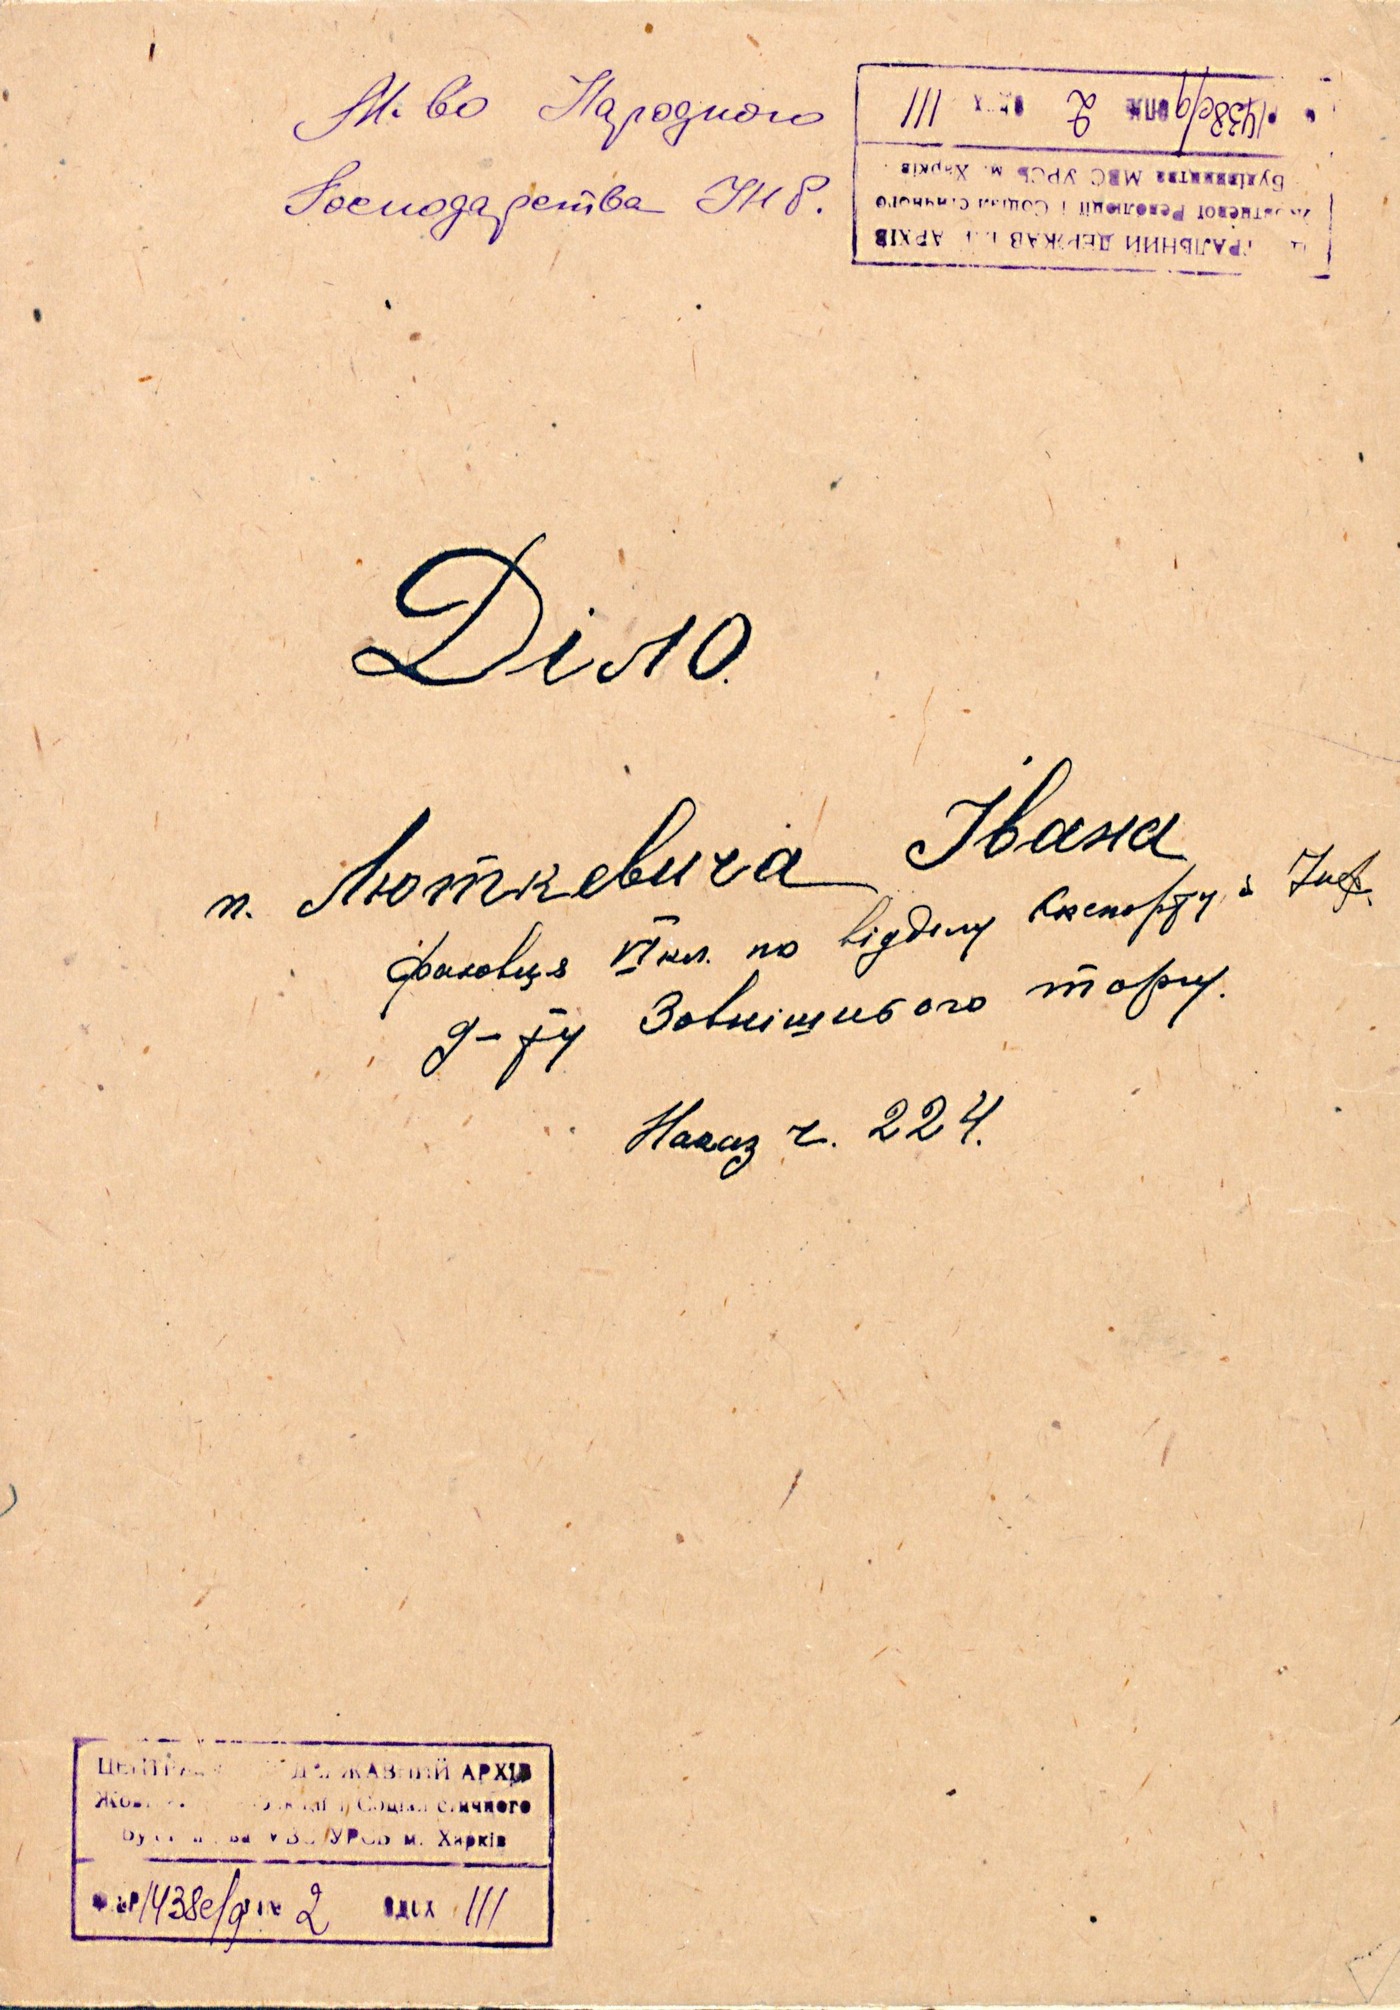 М-во Народного
Господарства УНР.
ЦЕНТРАЛЬНИЙ ДЕРЖАВНИЙ АРХІВ
Жовтневої Революції і Соціалістичного
Будівництва МВС УРСР м. Харків
1438с/д оп. 2 од. х 111
Діло.
п. Люткевича Івана
фаховця VI кл. по відділу Експорту і Інф.
д-ту Зовнішнього торгу.
Наказ ч. 224.
ЦЕНТРАЛЬНИЙ ДЕРЖАВНИЙ АРХІВ
Жовтневої Революції і Соціалістичного
Будівництва МВС УРСР м. Харків
1438с/д 2 од. зх 111